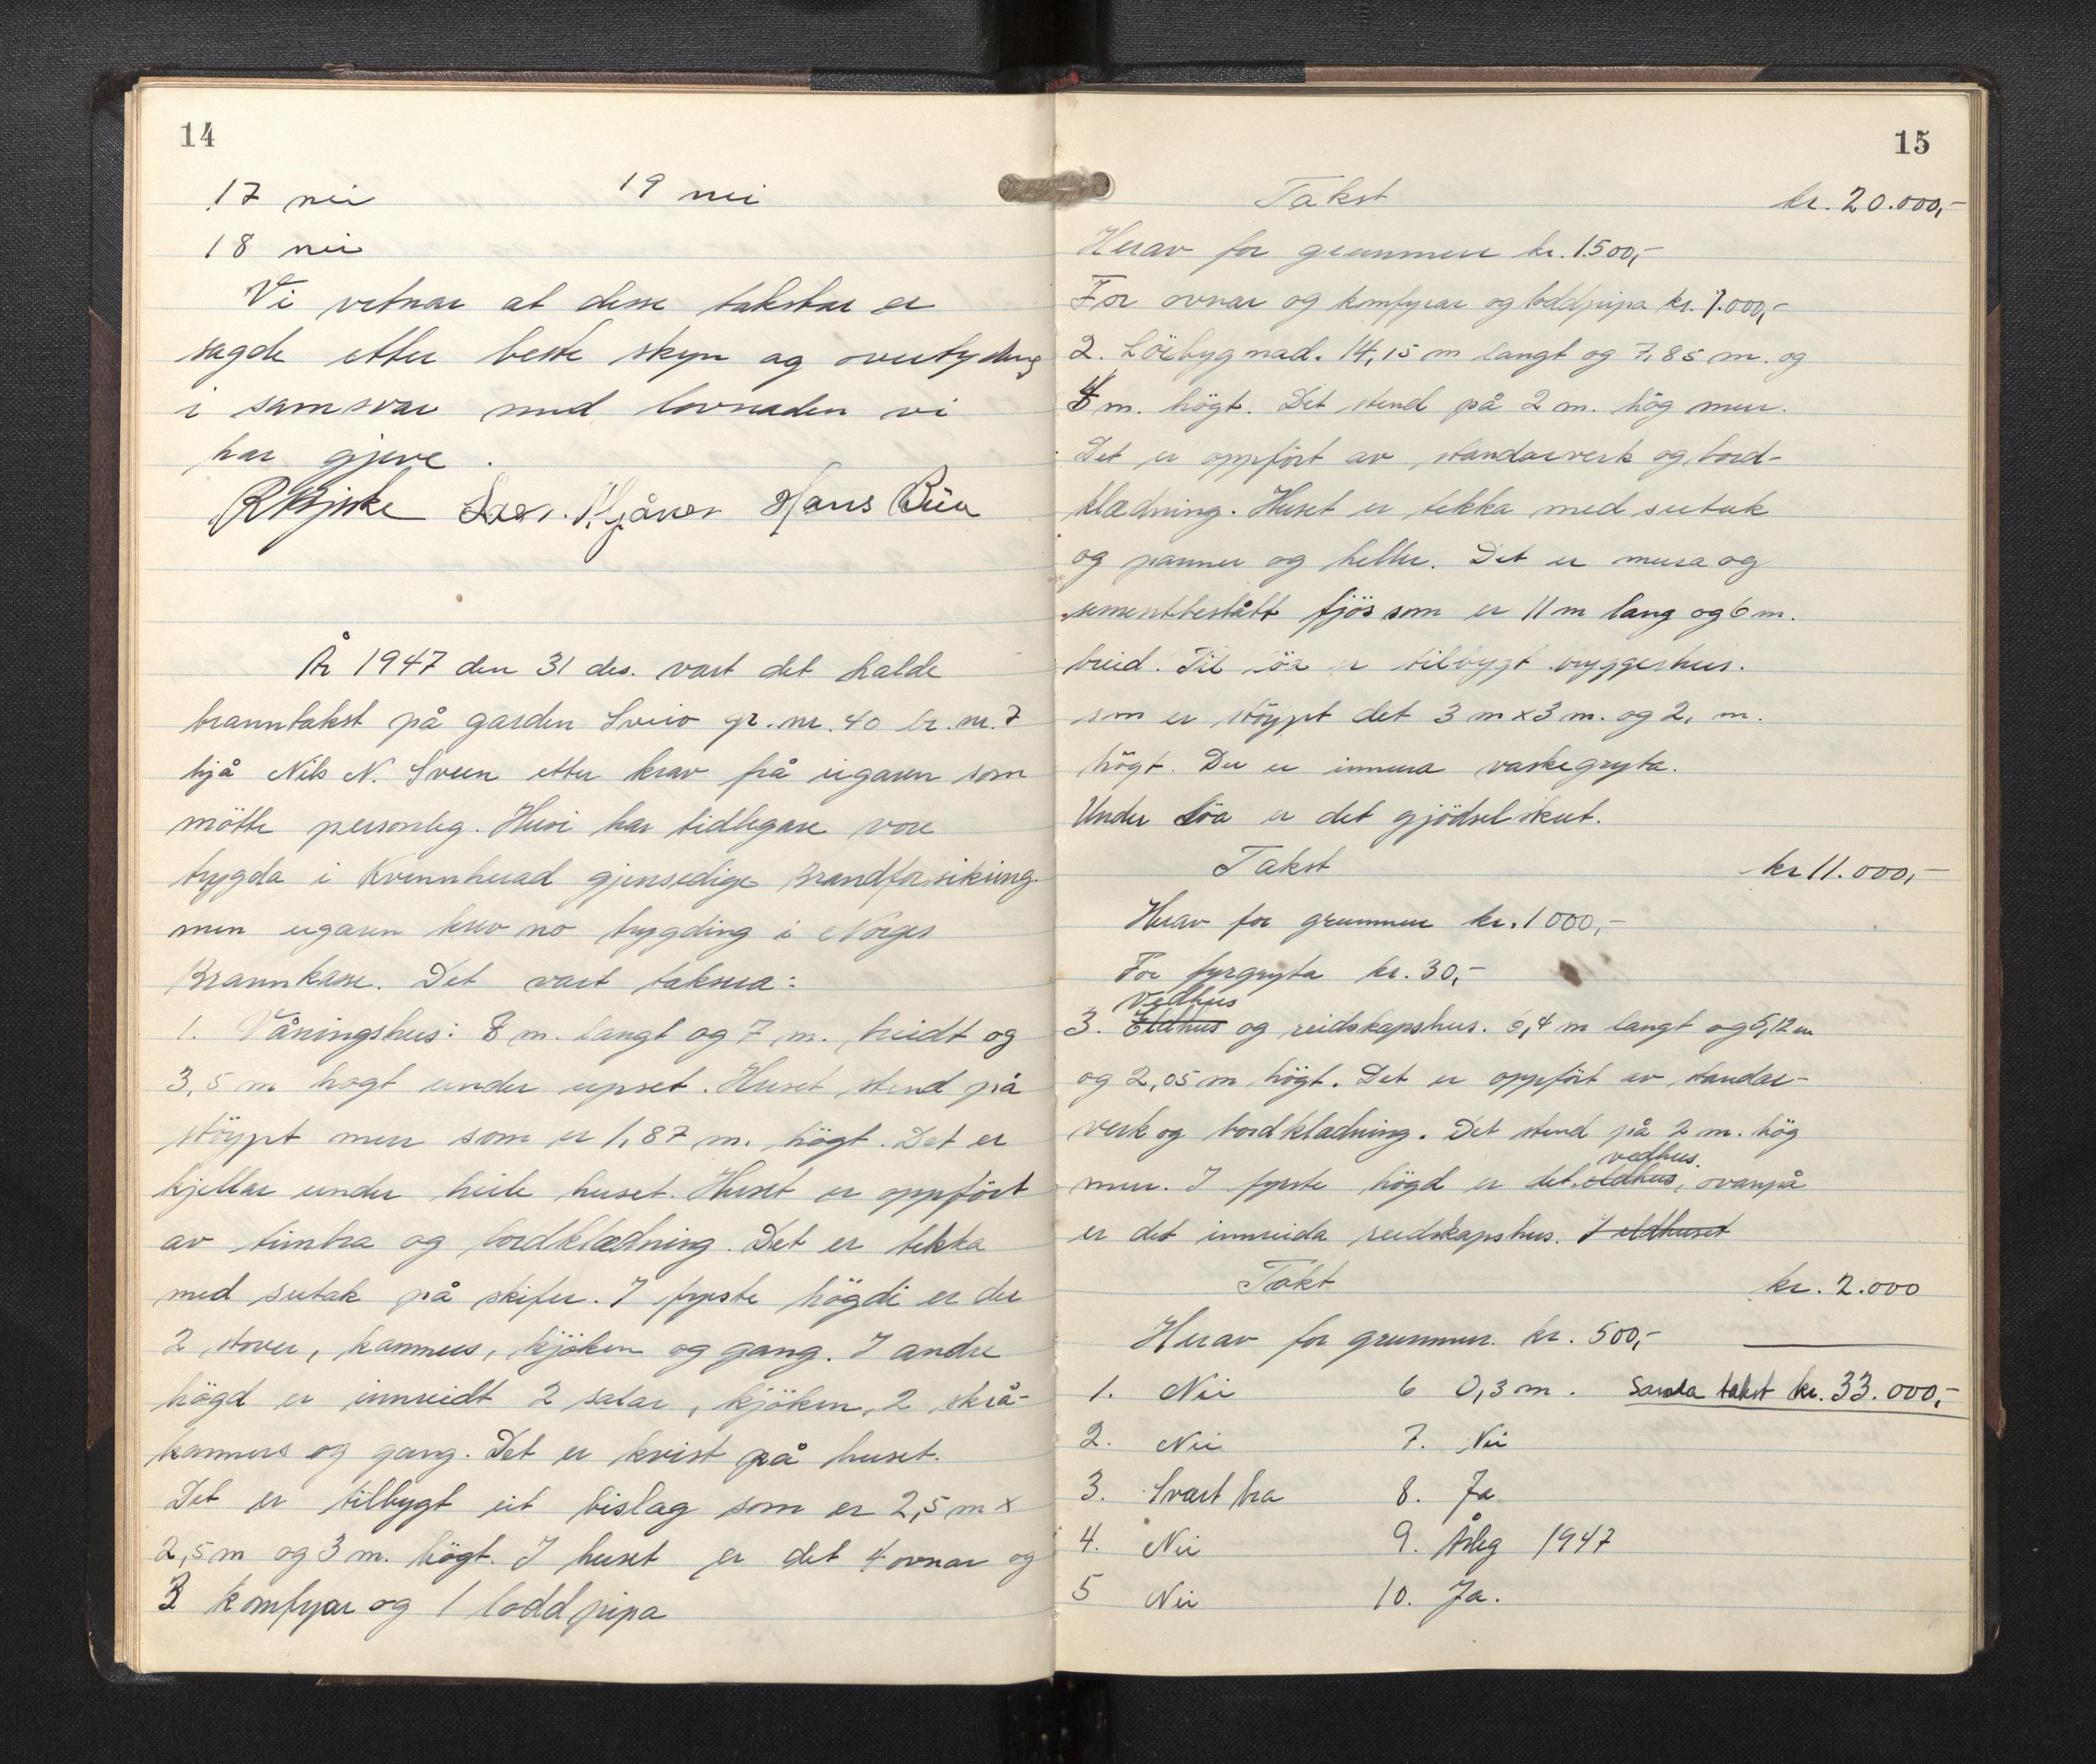 14
17 nei 19 nei
18 nei
Vi vitnar at desse takstar er
sagde etter beste skyn og overtyding
i samsvar med lovnaden vi
har gjeve.
Hans
År 1947 den 31 des. vart det halde
branntakst på garden Svein gr. nr. 40 br. nr. 7
hjå Nils N. Sveen etter krav frå eigaren som
mötte personleg. Husi har tidlegare vore
trygda i Kvinnherad gjensidige Brandforsikring.
men eigaren krev no trygding i Norges
Brannkasse. Det vart taksera:
1. Våningshus: 8 m. langt og 7 m. breidt og
3,5 m högt under upset. Huset stend på
stöypt mur som er 1,87 m. högt. Det er
kjellar under heile huset. Huset er oppfört
av timbra og bordklædning. Det er tekka
med sutak på skifer. I fyrste högdi er der
2 stover, kammers, kjöken og gang. I andre
högd er innreidt 2 salar, kjöken, 2 skrå-
kammers og gang. Det er kvist på huset.
Det er tilbygt eit bislag som er 2,5 m x
2,5 m og 3 m. högt. I huset er det 4 ovnar og
3 komfyrar og 1 loddpipa
15
Takst kr. 20.000,-
Herav for grunnmur kr. 1500,-
For ovnar og komfyrar og loddpipa kr. 1.000,-
2. Löebygnad. 14,15 m langt og 7,85 m. og
4 m. högt. Det stend på 2 m. hög mur.
Det er oppfört av standarverk og bord-
klædning. Huset er tekka med sutak
og panner og heller. Det er mura og
sementbeslått fjös som er 11 m lang og 6 m.
breid. Til löa er tilbygt bryggerhus.
som er stöypt det 3 m x 3 m. og 2, m.
högt. Der er innmura vaskegryta.
Under löa er det gjödselskut.
Takst kr 11.000,-
Herav for grunnmur kr. 1000,-
For fyrgryta kr. 30,-
Vedhus
3. Eldhus og reidskapshus. 6,4 m langt og 5,12 m
og 2,05 m högt. Det er oppfört av standar-
verk og bordkladning. Det stend på 2 m. hög
vedhus.
mur. I fyrste högd er det eldhus, ovanpå
er det innreida reidskapshus. I eldhuset
Takt kr. 2.000
Herav for grunnmur. kr. 500,-
1. Nei 6 0,3 m. Samla takst kr. 33.000,-
2. Nei 7. Nei
3. Svært bra 8. Ja
4. Nei 9. Årleg 1947
5 Nei 10. Ja.